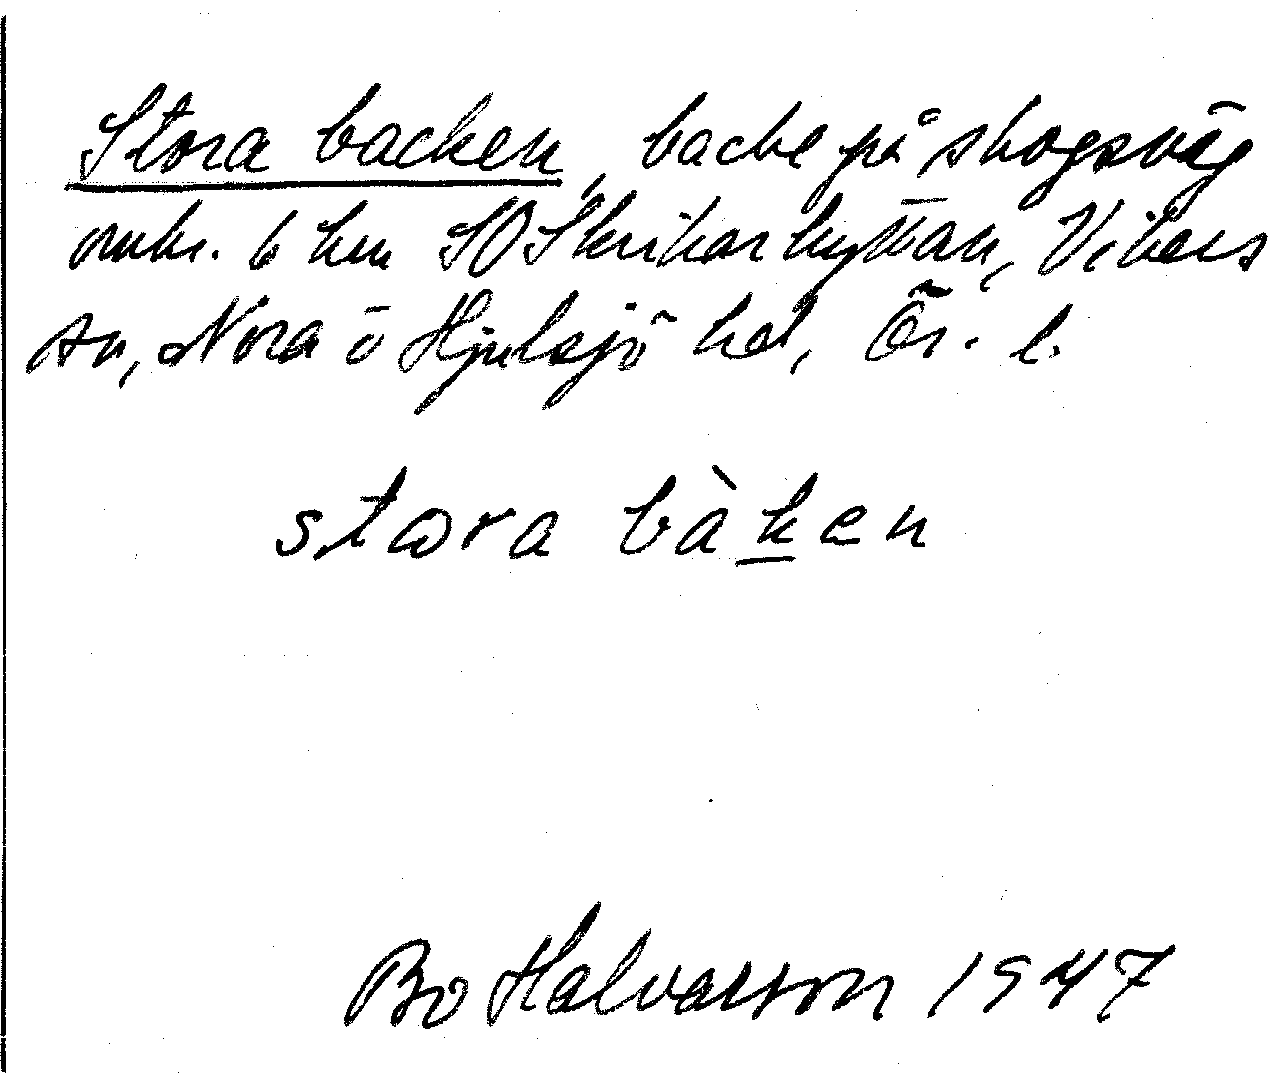 Stora backen, backe på skogsväg
omkr. 6 km SO Skrikarhyttan, Vikers
sn, Nora o Hjulsjö hd, Ör. l.
stωra bàken
Bo Halvarson 1947